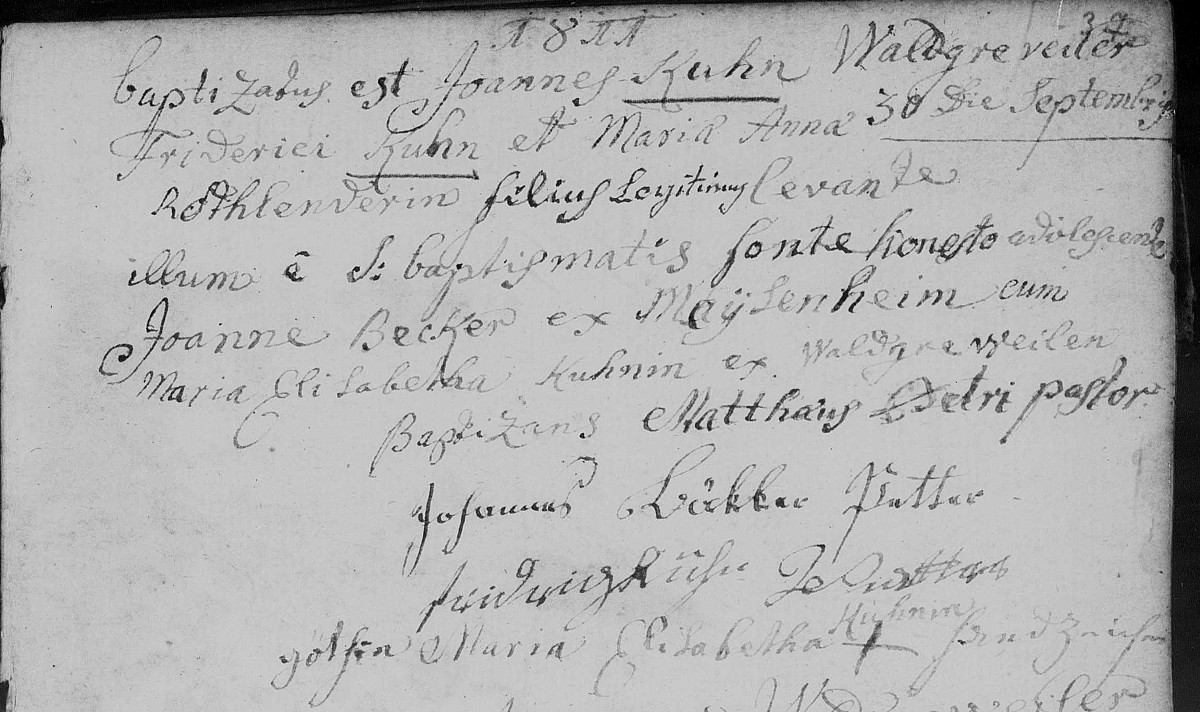 1811
39
baptizatus est Joannes Kuhn Waldgreveiler
30 die Septembris
Friderici Kuhn et Mariæ Annæ
Rothlenderin filius Legitimus levante
illum ê S: baptismatis fonte honesto adolescente
Joanne Becker ex Maysenheim cum
Maria Elisabetha Kuhnin ex Waldgreweilen
Baptizans Matthäus Detri pastor
Johannes Bäkker Petter
fridrich Kühn
Kuhnin
göthin Maria Elisabetha + handzeichen